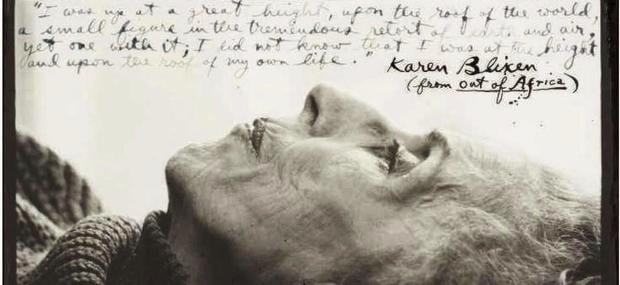 "I was up at a great height, upon the roof of the world,
a small figure in the tremendous retort of earth and air,
yet one with it; I did not know that I was at the height
and upon the roof of my own life."
Karen Blixen
(from out of Africa)